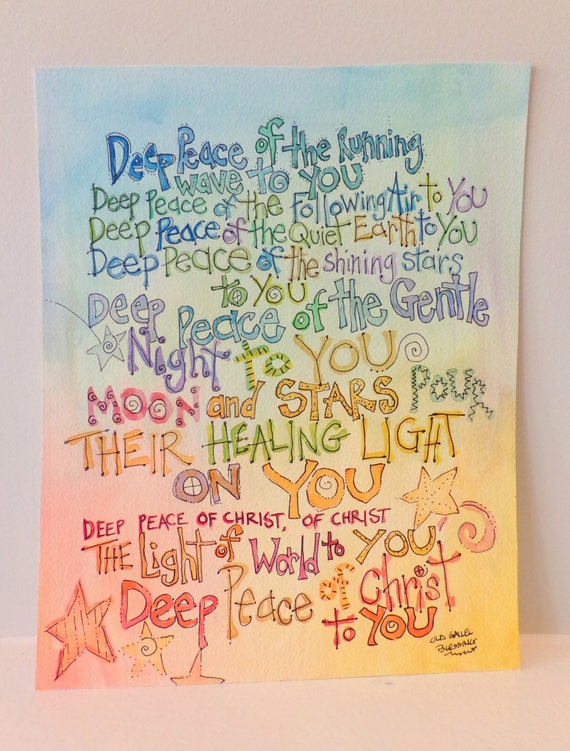 Deep Peace of the Running
wave to YOU
Deep Peace of the Following Air to YOU
Deep Peace of the Quiet Earth to YOU
Deep Peace of the Shining stars
to YOU
Deep Peace of the Gentle
Night To YOU
MOON and STARS Pour
THEIR HEALING LIGHT
ON YOU
DEEP PEACE OF CHRIST, OF CHRIST
THE Light of World to YOU
Deep Peace of Christ
to YOU
OLD GAELEL
BLESSING